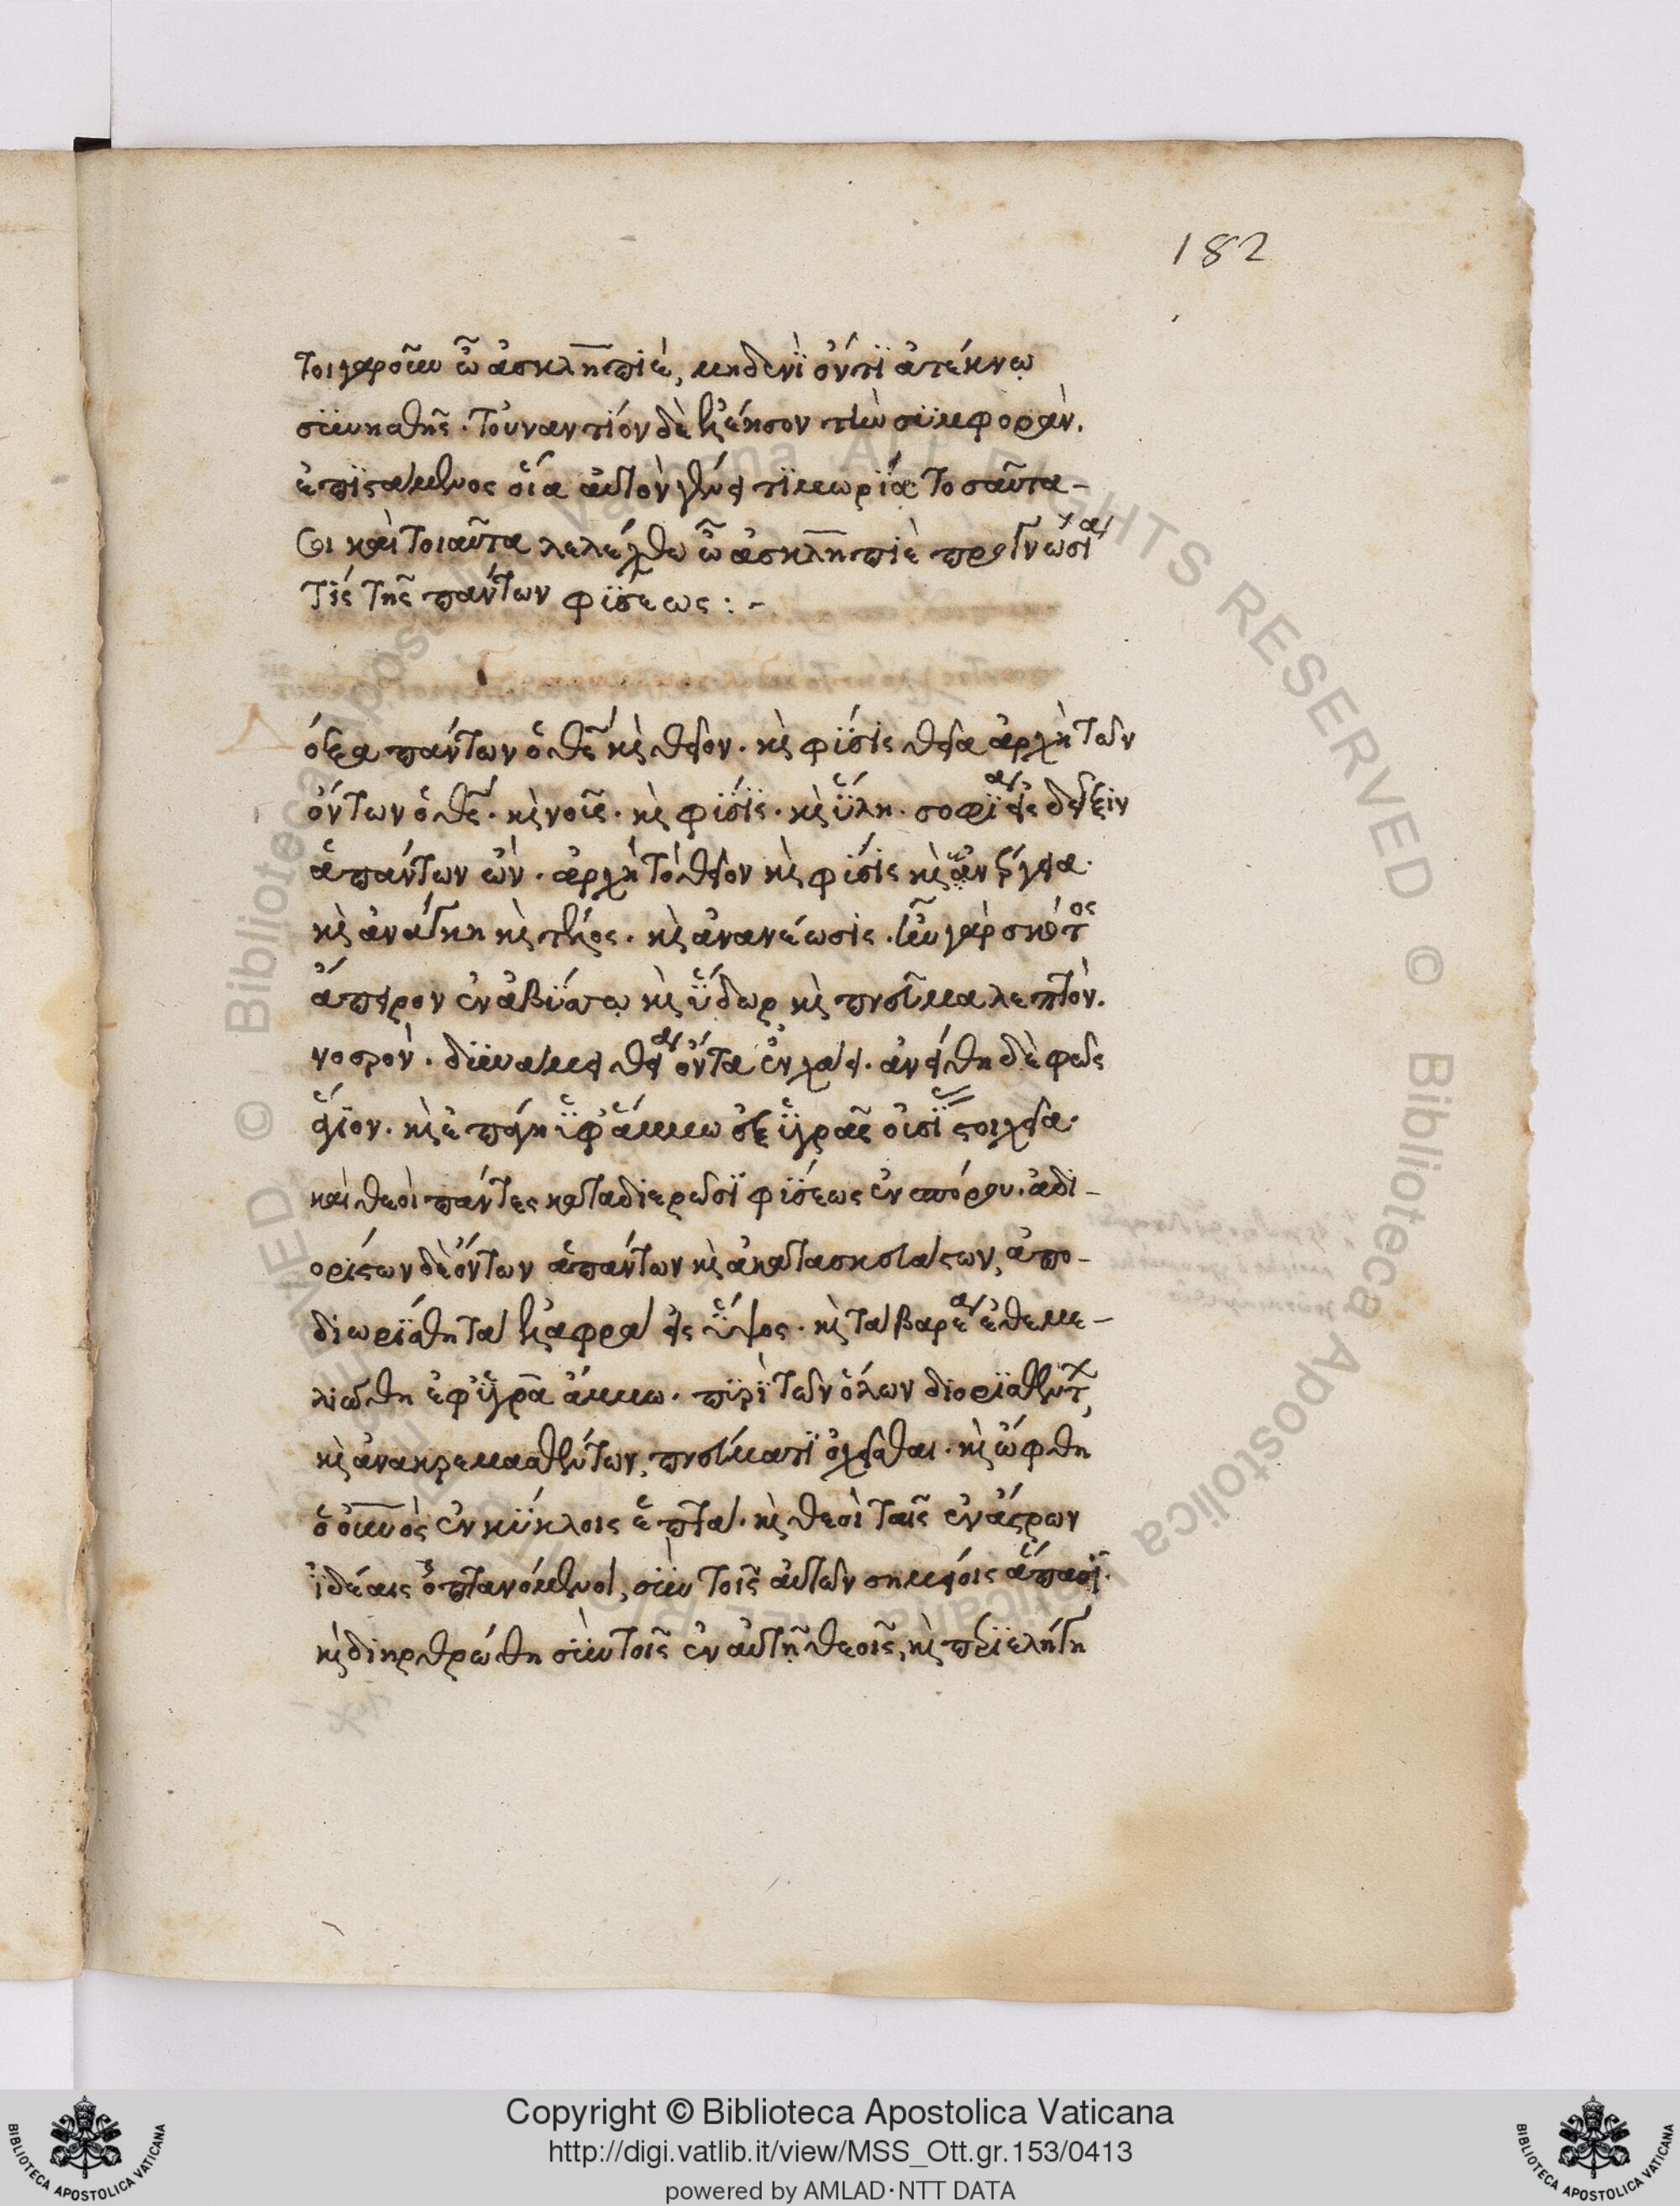 182
τοιγαροῦν ὦ ἀσκληπιὲ, μηδενὶ ὄντι ἀτέκνω
συνησθῆς· τοὐναντίον δὲ ἐλέησον τὴν συμφορὰν.
ἐπιστάμενος οἵα αὐτὸν μένει τιμωρία τοσαῦτα-
σοι καὶ τοιαῦτα λελέχθω ὦ ἀσκληπιὲ προγνωσία
τίς τῆς πάντων φύσεως :-
όξα πάντων ὁ θεὸς καὶ θεῖον· καὶ φύσις θεία ἀρχὴ τῶν
ὄντων ὁ θεὸς· καὶ νοῦς· καὶ φύσις· καὶ ὕλη· σοφία εἰς δεῖξιν
ἁπάντων ὢν· ἀρχὴ τὸ θεῖον καὶ φύσις καὶ ἐνέργεια·
καὶ ἀνάγκη καὶ τέλος· καὶ ἀνανέωσις· ἦν γὰρ σκότος
ἄπειρον ἐν ἀβύσσω καὶ ὕδωρ καὶ πνεῦμα λεπτὸν.
νοερὸν· δυνάμει θεία ὄντα ἐν χάει· ἀνείθη δὲ φῶς
ἅγιον· καὶ ἐπάγη ὑφ' ἅμμω ἐξ ὑγρᾶς οὐσίας στοιχεῖα·
καὶ θεοὶ πάντες καταδιερῶσι φύσεως ἐνσπόρου· ἀδι-
ορίστων δὲ ὄντων ἁπάντων καὶ ἀκατασκευάστων, ἀπο-
διωρίσθη τὰ ἐλαφρὰ εἰς ὕψος· καὶ τὰ βαρέα ἐθεμε-
λιώθη ἐφ' ὑγρᾶ ἄμμω· πυρὶ τῶν ὅλων διορισθέντων,
καὶ ἀνακρεμασθέντων, πνεύματι ὀχεῖσθαι· καὶ ὤφθη
ὁ οὐνὸς ἐν κύκλοις ἑπτὰ· καὶ θεοὶ ταῖς ἐν ἄστρων
ἰδέαις ὀπτανόμενοι, σὺν τοῖς αὐτῶν σημείοις ἅπασι·
καὶ διηρθρώθη σὺν τοῖς ἐν αὐτῆ θεοῖς, καὶ περιελήγη
Copyright © Biblioteca Apostolica Vaticana
http://digi.vatlib.it/view/MSS_Ott.gr.153/0413
powered by AMLAD·NTT DATA